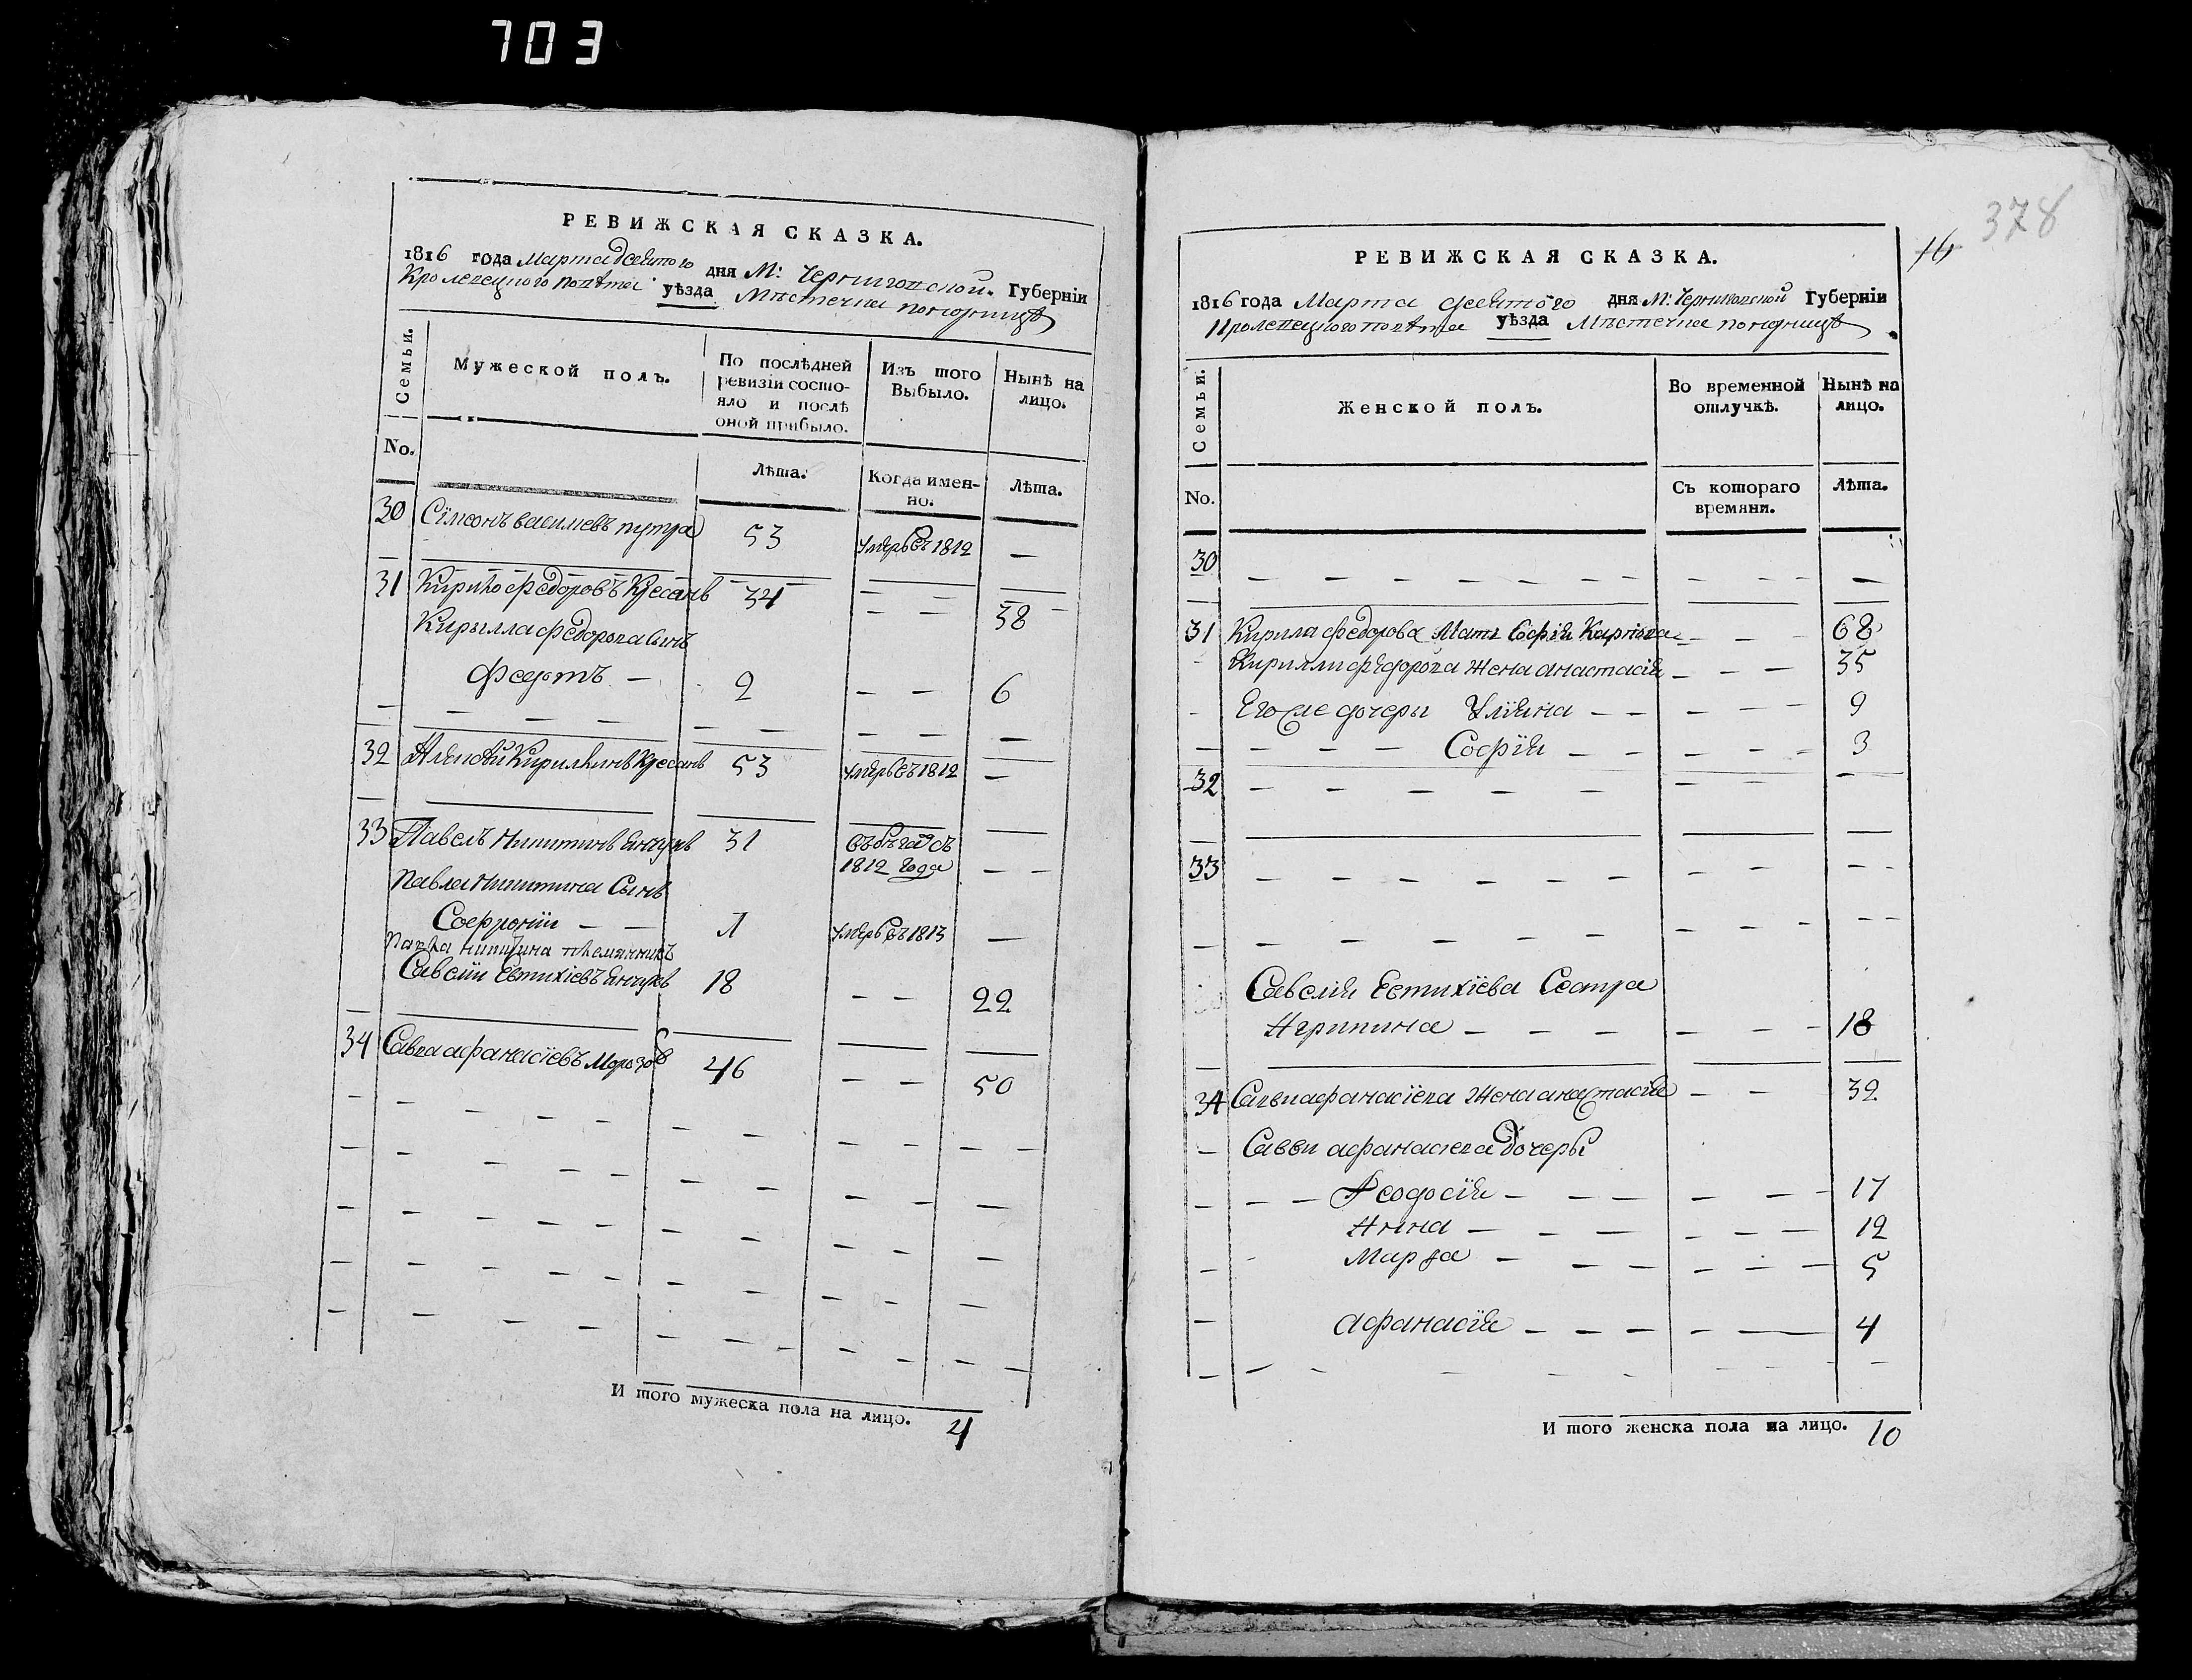 703
РЕВИЖСКАЯ СКАЗКА.
1816 года Марта девятого дня М: Черниговской. Губерніи
Кролевецкого повѣта уѣзда Мѣстечка понорницѣ
Семьи.
Мужеской полъ.
По послѣдней ревизіи состояло и послѣ оной прибыло.
Изъ того Выбыло.
Нынѣ на лицо.
No.
Лѣта.
Когда именно.
Лѣта.
30 Сімеонъ василиевъ 53 умеръ въ 1812 —
31 Кирило федоровъ 34 — — 38
Кирылла федорова сынъ
федотъ — 2 — — 6
32 53 умеръ въ 1812 —
33 Павелъ Никитинъ 31 въ бѣгахъ съ
1812 года — —
Павла Никитина Сынъ
Софроній — — 1 умеръ въ 1813 —
Павла никитина племянникъ
Савелій Евтихіевъ 18 — — 22
34 Савва афанасіевъ Морозов 46 — — 50
И того мужеска пола на лицо. 4
378
16
РЕВИЖСКАЯ СКАЗКА.
1816 года Марта девятого дня М: Черниговской Губерніи
Кролевецкого повѣта уѣзда Мѣстечка понорницѣ
Семьи.
Женской полъ.
Во временной отлучкѣ.
Нынѣ на лицо.
No.
Съ котораго времяни.
Лѣта.
30 — — — — — — —
31 Кирила федорова Мать Софія Карпова — — — 68
Кирилли федорова жена анастасія — — — 35
Его же дочеры Уліяна — — — — — 9
— — — Софія — — — — — 3
32 — — — — — — — —
33 — — — — — — — — — —
Савелія Евтихієва Сестра
Агрипина — — — — — — 18
34 Савви афанасіева Жена анастасія — — 32
Савви афанасіева дочеры
— — Феодосія — — — — — — 17
Анна — — — — — — 12
Марфа — — — — — — 5
афанасія — — — — — 4
И того женска пола на лицо. 10